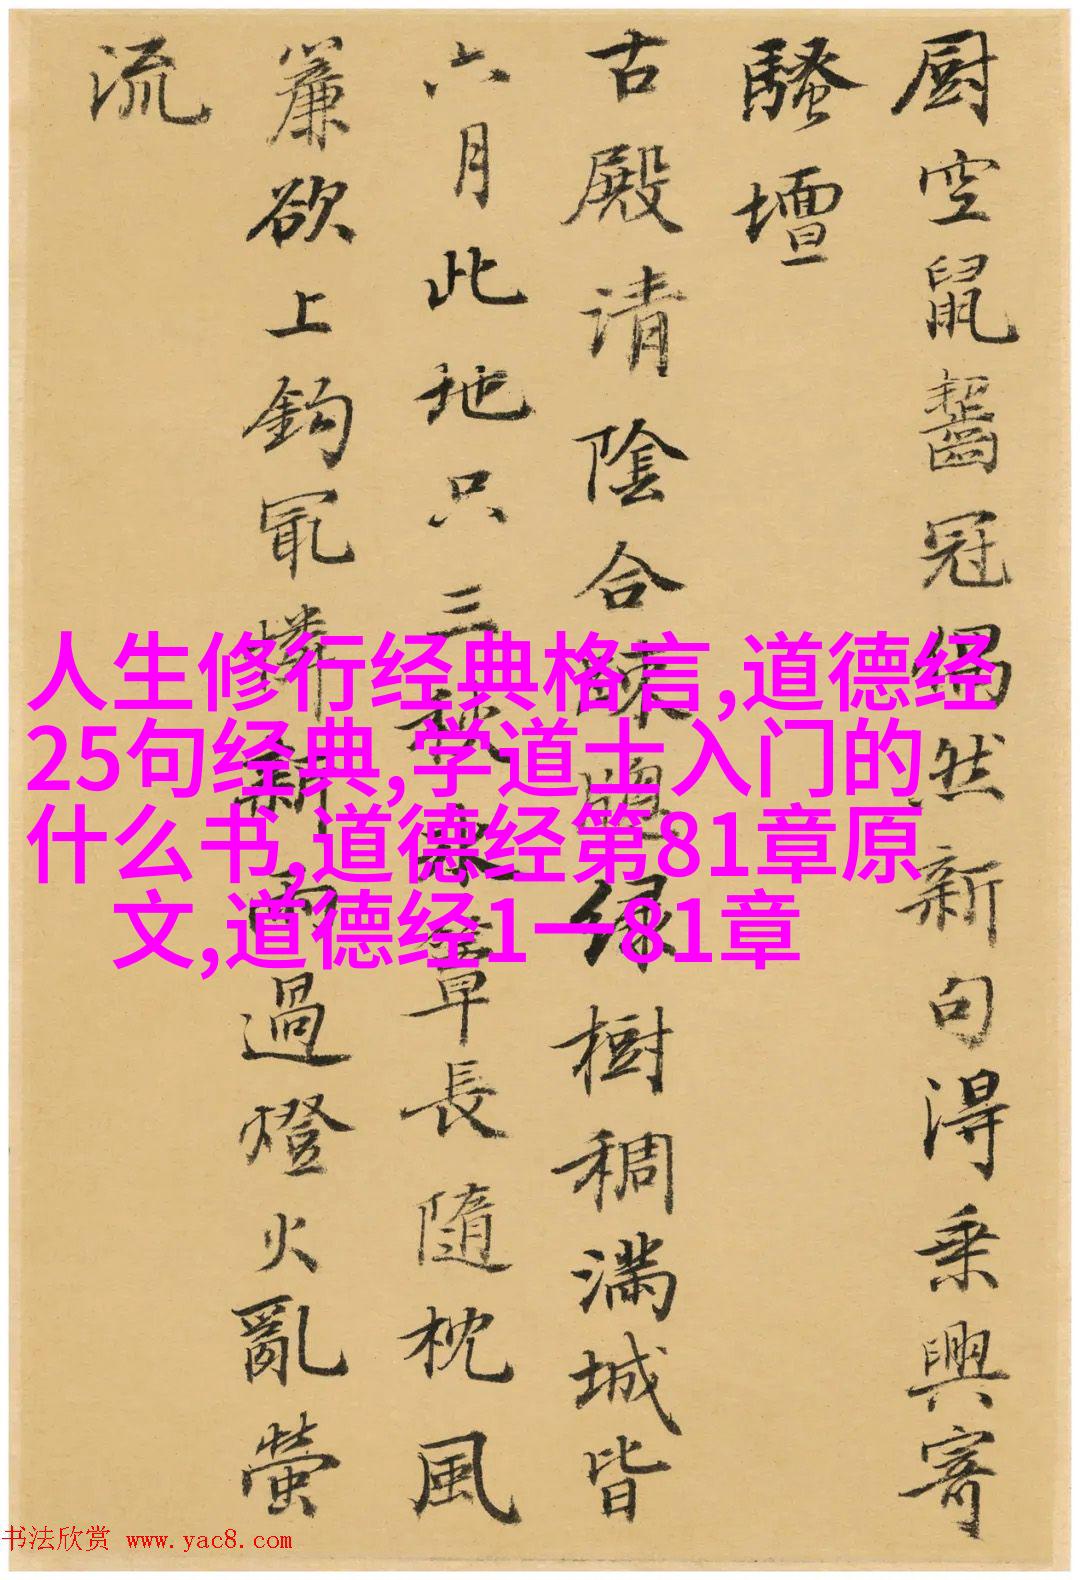 厨空鼠齧冠然新句得乘興寄
騷壇
古殿请陰合疎绿樹稠满城皆
六月此地只三長隨枕風
簾欲上鈎冣憐新雨過燈火亂螢
流
人生修行经典格言,道德经
25句经典,学道士入门的
什么书,道德经第81章原
文,道德经1一81章
书法欣赏 www.yac8.com